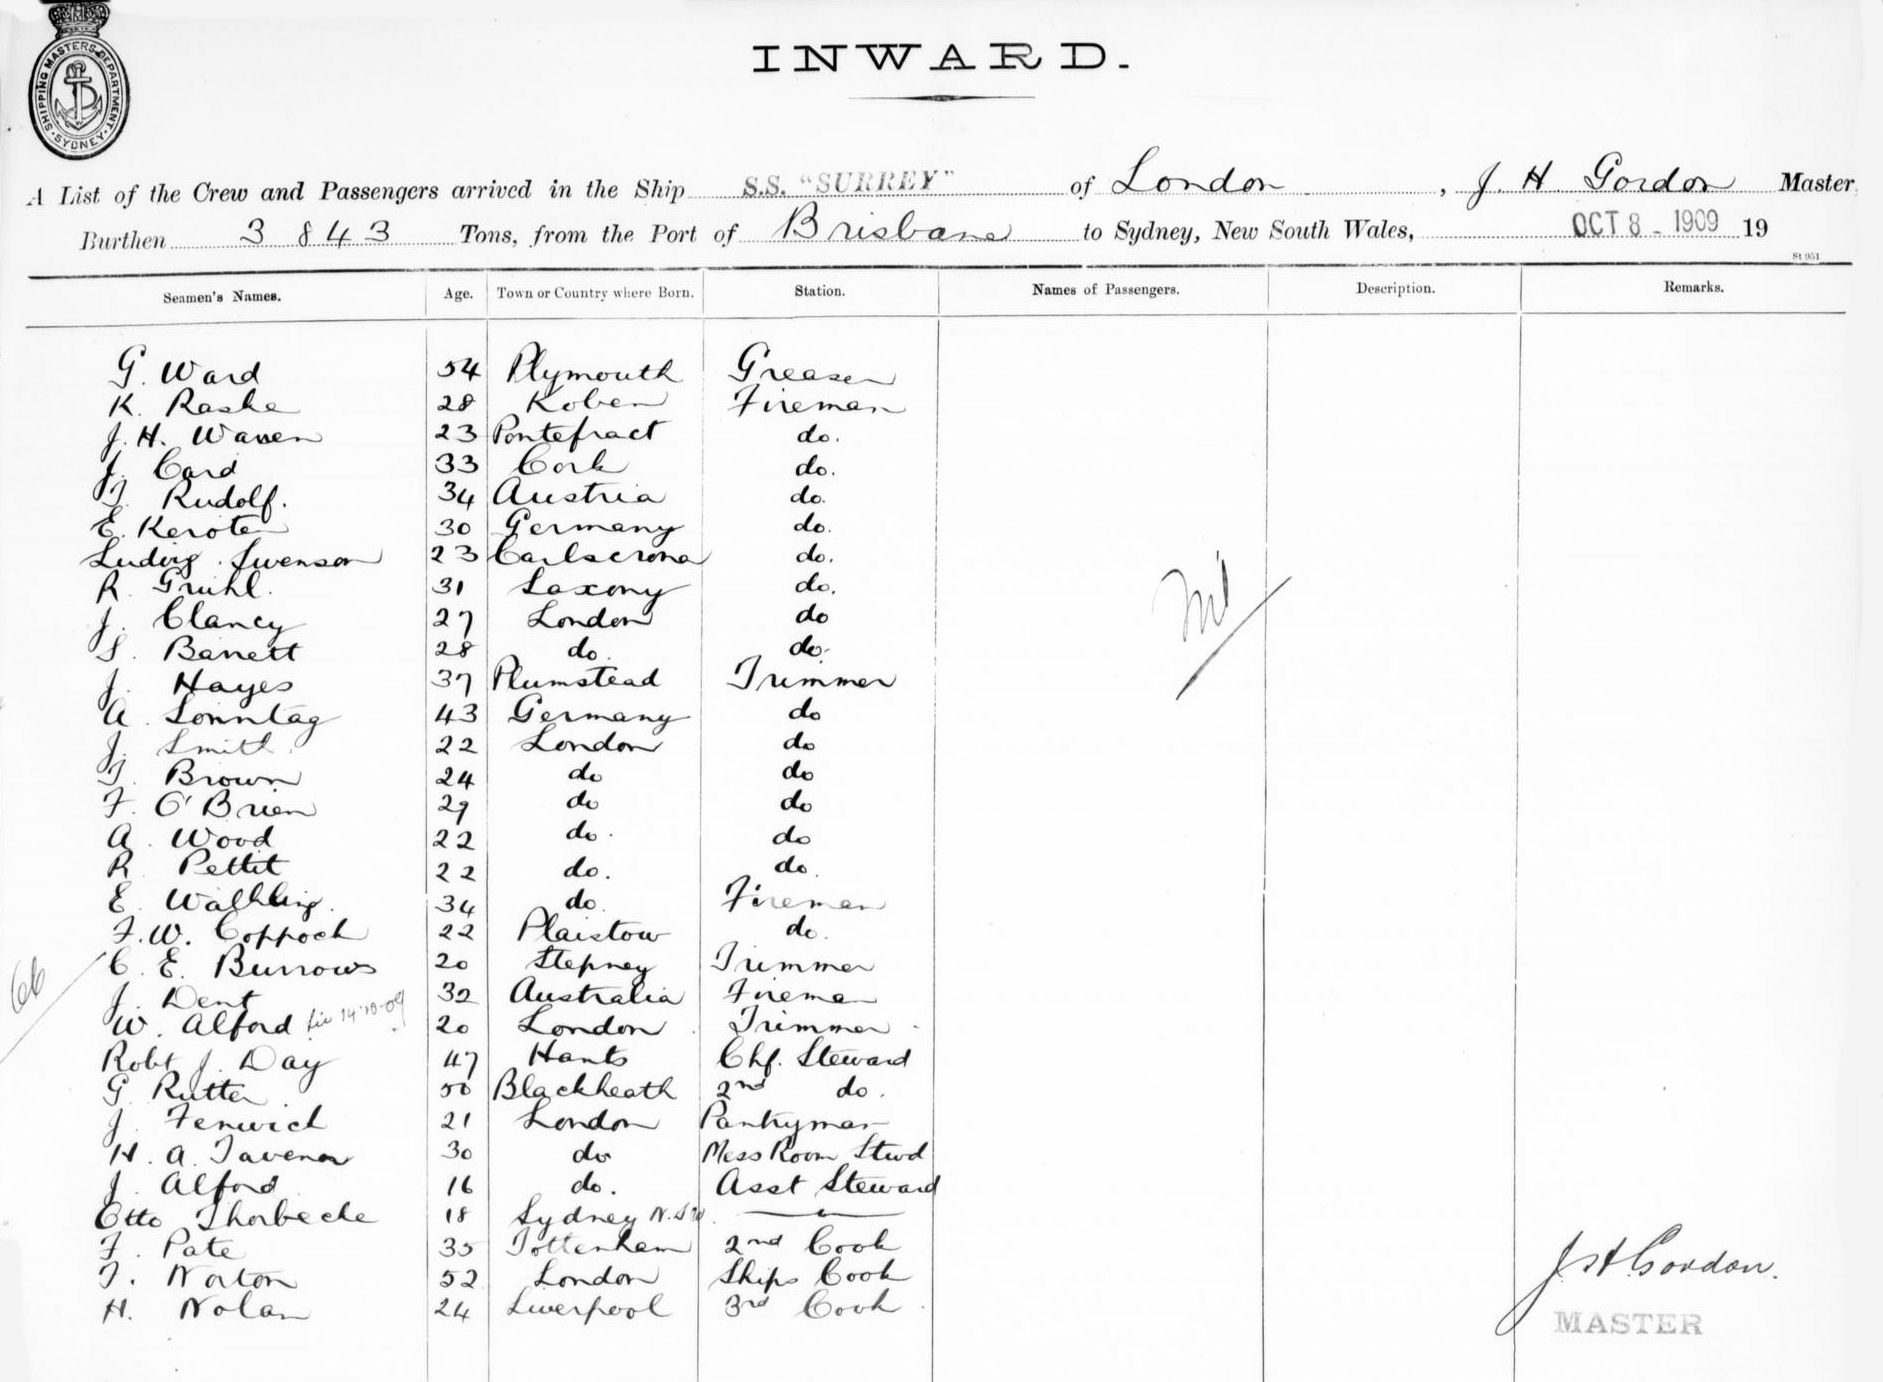 SHIPPING MASTERS DEPARTMENT
SYDNEY
INWARD.
A List of the Crew and Passengers arrived in the Ship S.S. "SURREY" of London, J. H. Gordon Master
Burthen 3843 Tons, from the Port of Brisbane to Sydney, New South Wales, OCT 8 - 1909 19
St 951
Seamen's Names. Age. Town or Country where Born. Station. Names of Passengers. Description. Remarks.
G. Ward 54 Plymouth Greaser
K. Raske 28 Koben Fireman
J. H. Warren 23 Pontefract do.
J. Card 33 Cork do.
T. Rudolf. 34 Austria do.
E. Kerote 30 Germany do.
Ludvig Swenson 23 Carlscrona do.
R. Gruhl. 31 Saxony do.
J. Clancy 27 London do
S. Barrett 28 do. do.
J. Hayes 37 Plumstead Trimmer
A. Sonntag 43 Germany do
J. Smith 22 London do
T. Brown 24 do do
F. O'Brien 29 do do
A. Wood 22 do. do
R. Pettit 22 do. do.
E. Wahlling. 34 do. Fireman
F. W. Coppock 22 Plaistow do.
C. E. Burrows 20 Stepney Trimmer
66
J. Dent 32 Australia Fireman
W. Alford 14-10-09 20 London Trimmer
Robt J. Day 47 Hants Chf. Steward
G. Rutter 50 Blackheath 2nd do.
J. Fenwick 21 London Pantryman
H. A. Tavenor 30 do Mess Room Stwd
J. Alford 16 do. Asst Steward
Otto Thorbecke 18 Sydney N.S.W.
F. Pate 35 Tottenham 2nd Cook
T. Norton 52 London Ships Cook
H. Nolan 24 Liverpool 3rd Cook
Nil
J H Gordon.
MASTER